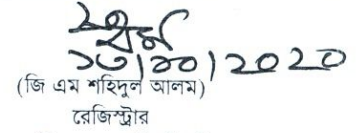 ১৩/১০/২০২০
(জি এম শহিদুল আলম)
রেজিস্ট্রার